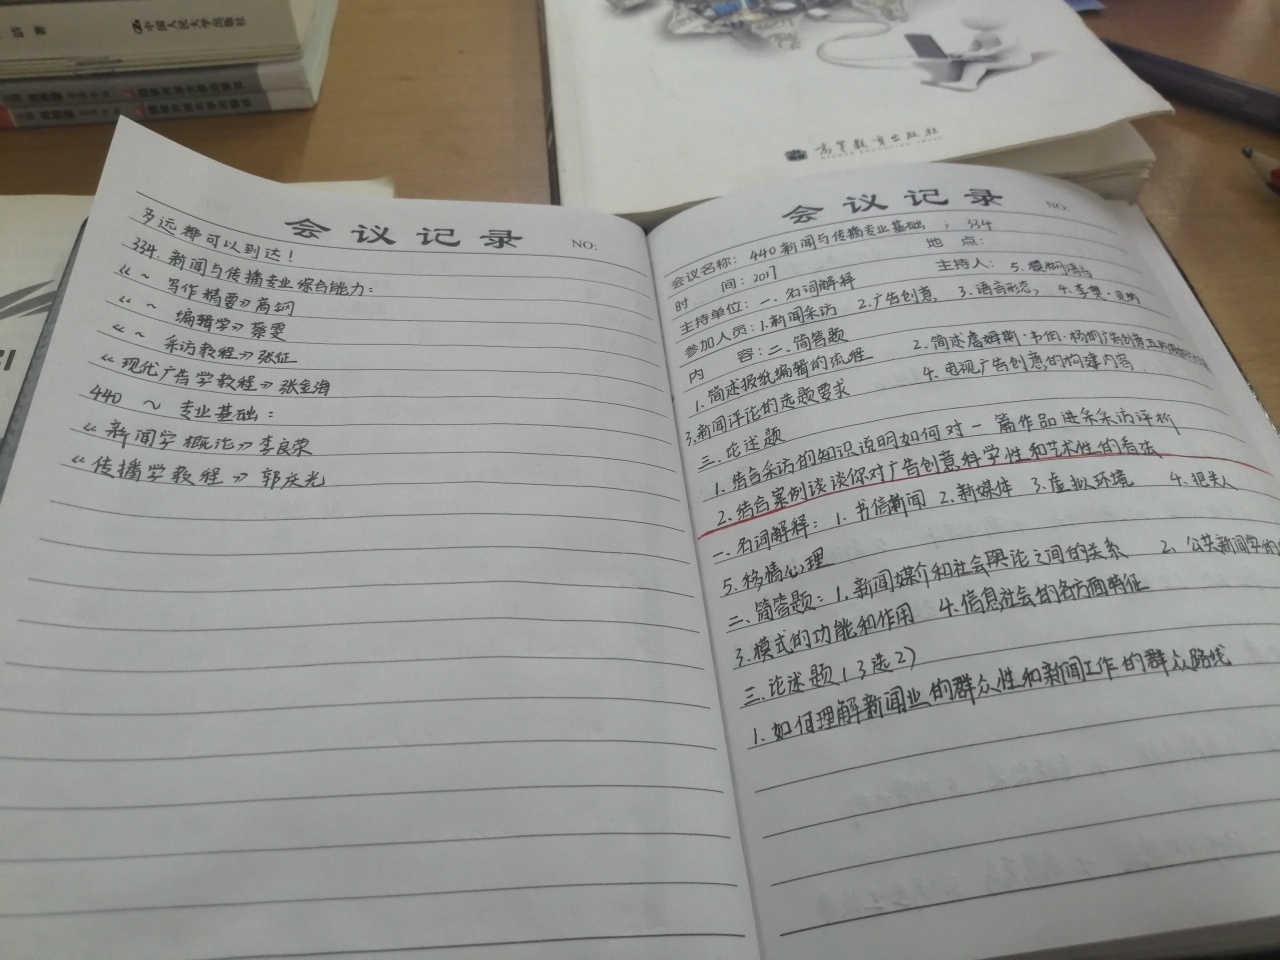 著
中国人民大学出版社
高等教育出版社
会议记录 NO:
多远都可以到达!
334.新闻与传播专业综合能力:
《~ 写作精要》高钢
《~ 编辑学》蔡雯
《~ 采访教程》张征
《现代广告学教程》张金海
440 ~ 专业基础:
《新闻学概论》李良荣
《传播学教程》郭庆光
会议记录 NO:
会议名称: 440新闻与传播专业基础 , 334
时 间: 2017 地 点:
主持单位: 一. 名词解释 主持人: 5.
参加人员: 1.新闻采访 2.广告创意, 3.语言形态, 4.李奥·贝纳
内 容: 二. 简答题
1.简述报纸编辑的流程 2.简述詹姆斯·韦伯·杨的广告创意五
3.新闻评论的选题要求 4.电视广告创意的构建内容
三.论述题
1.结合采访的知识说明如何对一篇作品进采采访评析
2.结合案例谈谈你对广告创意科学性和艺术性的看法
一.名词解释: 1.书信新闻 2.新媒体 3.虚拟环境 4.把关人
5.移情心理
二、简答题: 1.新闻媒介和社会舆论之间的关系 2、公共新闻学的
3.模式的功能和作用 4.信息社会的各方面特征
三.论述题(3选2)
1.如何理解新闻业的群众性和新闻工作的群众路线